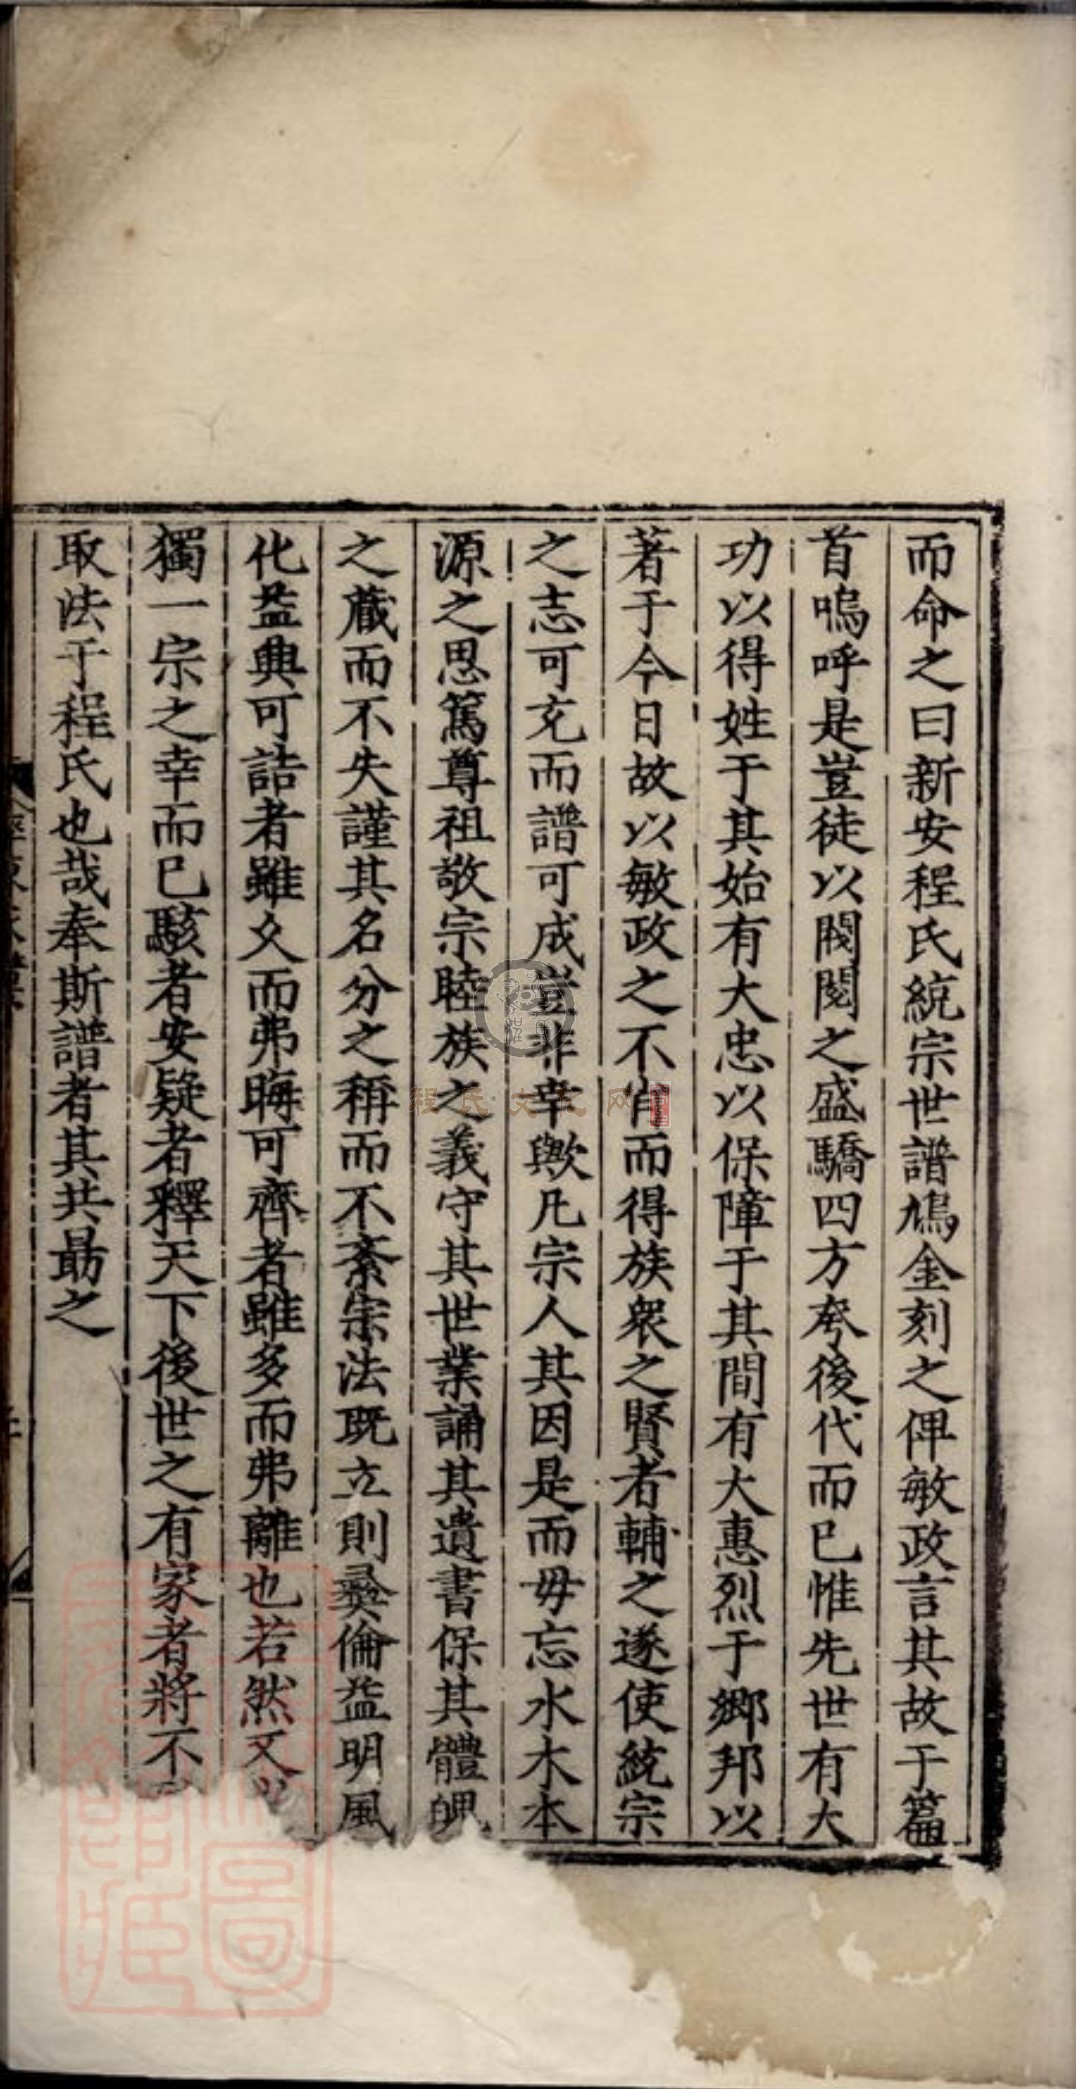 而命之曰新安程氏統宗世譜鳩金刻之俾敏政言其故于篇
首嗚呼是豈徒以閥閱之盛驕四方夸後代而已惟先世有大
功以得姓于其始有大忠以保障于其間有大惠烈于鄉邦以
著于今日故以敏政之不肖而得族衆之賢者輔之遂使統宗
之志可充而譜可成豈非幸歟凡宗人其因是而毋忘水木本
源之思篤尊祖敬宗睦族之義守其世業誦其遺書保其體魄
之藏而不失謹其名分之稱而不紊宗法既立則彝倫益明風
化益興可詰者雖久而弗晦可齊者雖多而弗離也若然又豈
獨一宗之幸而已駭者安疑者釋天下後世之有家者將不
取法于程氏也哉奉斯譜者其共勗之
程氏文化网